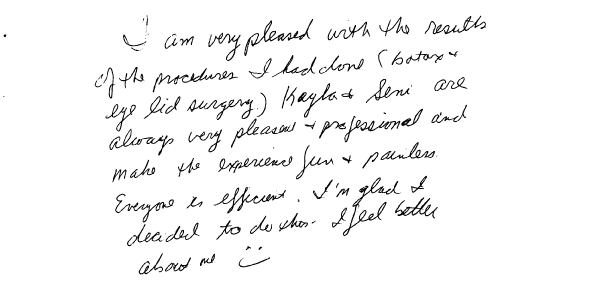 I am very pleased with the results
of the procedures I had done (botox +
eye lid surgery) Kayla + Seni are
always very pleasant + professional and
make the experience fun + painless.
Everyone is efficient. I'm glad I
decided to do this. I feel better
about me